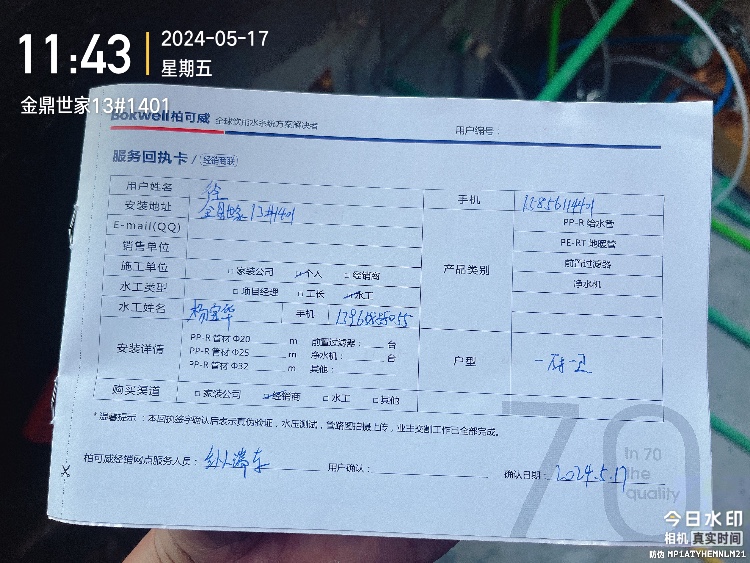 11:43 2024-05-17
星期五
金鼎世家13#1401
Bokwell柏可威 全球饮用水系统方案解决者 用户编号：
服务回执卡 / (经销商联)
用户姓名 徐 手机 13856114401
安装地址 金鼎世家13#1401 PP-R 给水管
E-mail(QQ) PE-RT 地暖管
销售单位 产品类别 前置过滤器
施工单位 □家装公司 □个人 □经销商 净水机
水工类型 □项目经理 □工长 □水工
水工姓名 杨宝华 手机
安装详情 户型 一厨一卫
PP-R 管材 Φ20 m 前置过滤器： 台
PP-R 管材 Φ25 m 净水机： 台
PP-R 管材 Φ32 m 其他：
购买渠道 □家装公司 □经销商 □水工 □其他
*温馨提示：本回执签字确认后表示真伪验证，水压测试，管路图拍摄上传，业主交割工作已全部完成。
柏可威经销网点服务人员： 用户确认： 确认日期：2024.5.17
70
In 70
the
quality
今日水印
相机 真实时间
防伪 MP1ATYHEMNLM21